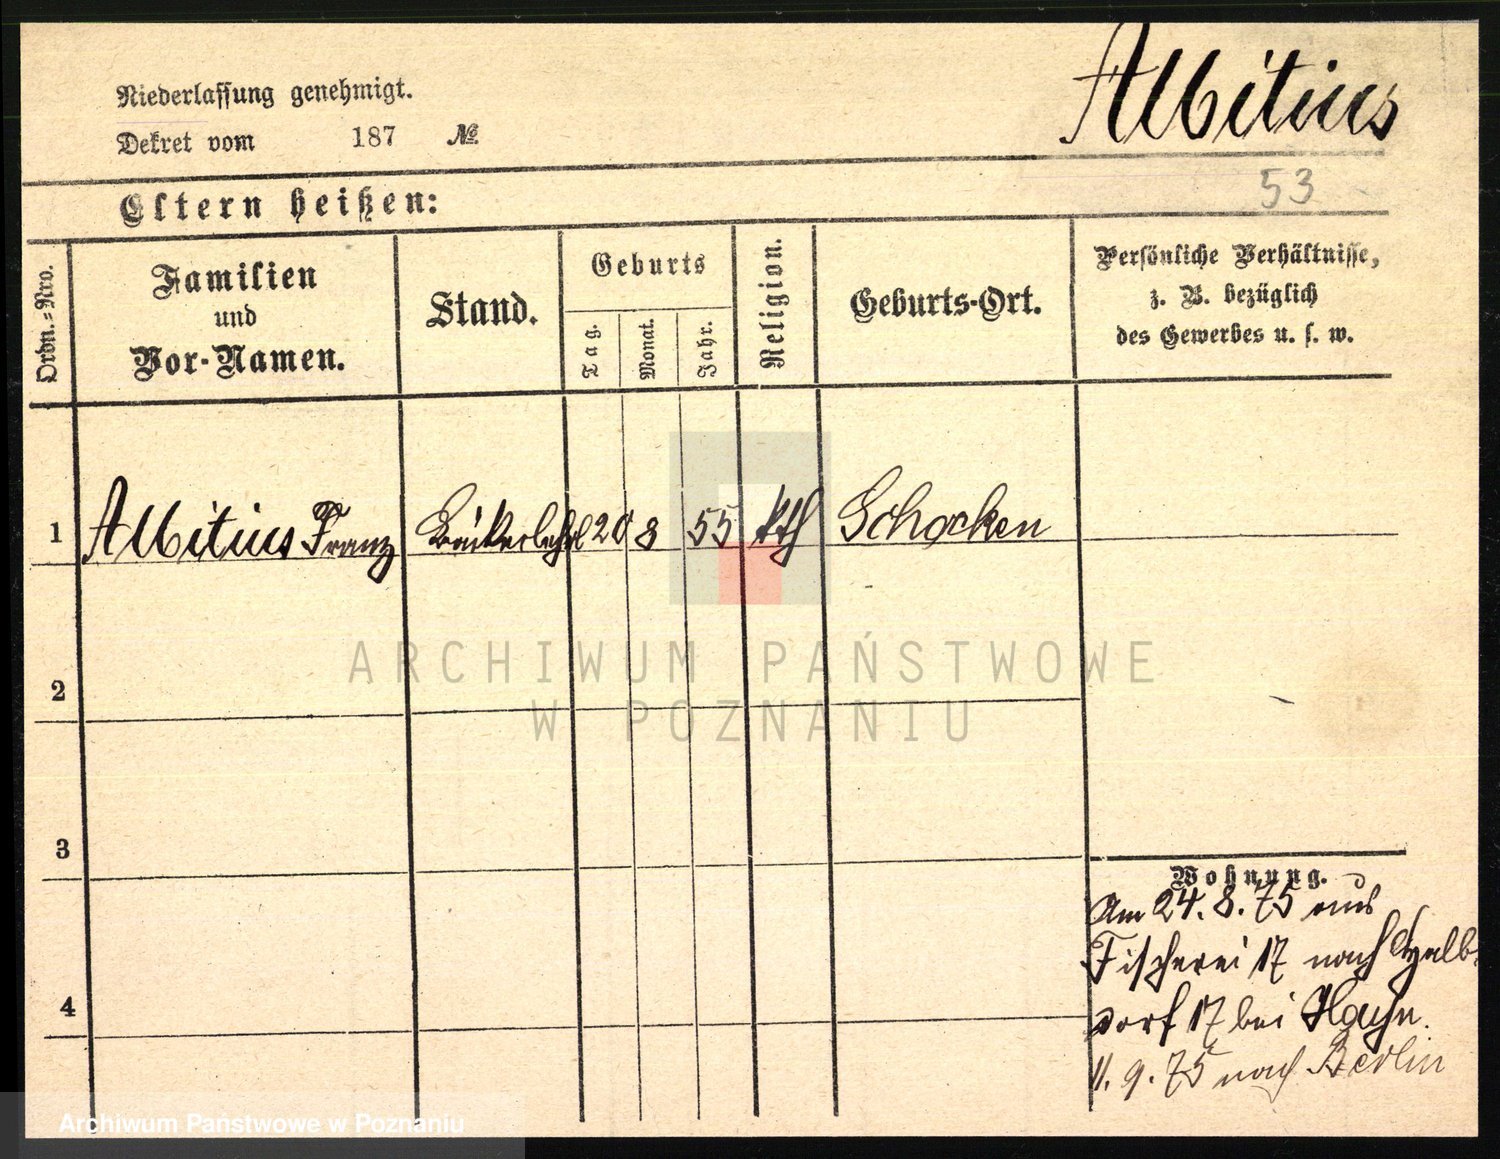 Albitius
Niederlassung genehmigt.
Dekret vom 187 №
53
Eltern heißen:
Ordn.=Nro.
Familien
und
Vor-Namen.
Stand.
Geburts
Tag.
Monat.
Jahr.
Religion.
Geburts-Ort.
Persönliche Verhältnisse,
z. B. bezüglich
des Gewerbes u. s. w.
1 Albitius Franz Bäckerlehrl 20 8 55 kth Schocken
2
3
4
Wohnung.
Am 24. 8. 75 aus
Fischerei 17 nach Halb-
dorf 17 bei
11. 9. 75 nach Berlin
ARCHIWUM PAŃSTWOWE
W POZNANIU
Archiwum Państwowe w Poznaniu